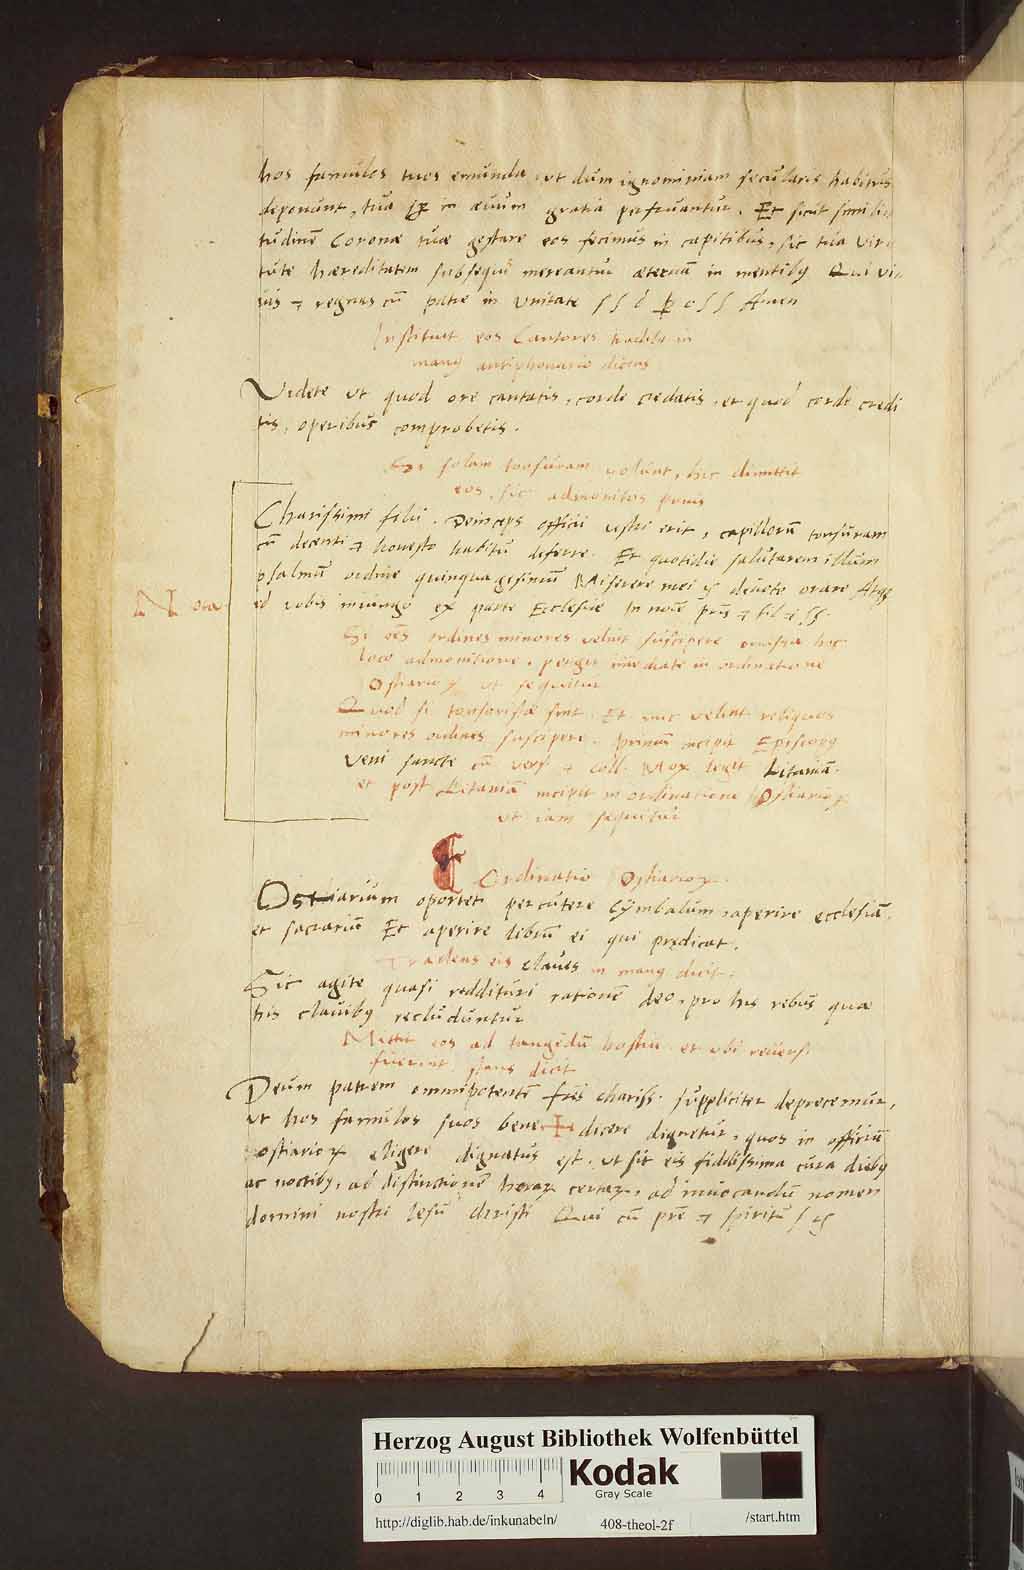 hos famulos tuos emunda ut dum ignominiam secularis habitus
deponunt, tua in ævum gratia perfruantur. Et sicut simili
tudinē Coronæ tuæ gestare eos fecimus in capitibus, sic tua vir
tute hæreditatem subsequi mereantur æternā in mentibꝫ Qui vi
uis ⁊ regnas cū patre in vnitate s s d p o s s Amen
Instituit eos Cantores tradito in
manꝫ antiphonario dicens
Videte ut quod ore cantatis, corde credatis, et quod corde credi
tis, operibus comprobetis.
Si solam tonsuram volunt, hic dimittit
eos, sic admonitos prius
Charissimi filii. Deinceps officii vestri erit, capillorū tonsuram
cū decenti ⁊ honesto habitū deferre. Et quotidie salutarem illum
psalmū ordine quinquagesimū Miserere mei devote orare Atqꝫ
id vobis iniungo ex parte Ecclesiæ In noīe prīs ⁊ fil ⁊ s s.
Nota
Si oēs ordines minores velint suscipere omissa hoc
loco admonitione, pergit imediate in ordinatione
Ostiarioꝝ ut sequitur
Quod si tonsoristæ sint. Et nūc velint reliquos
minores ordines suscipere. primū incipit Episcopꝫ
Veni sancte cū vers ⁊ coll. Mox legit Litaniā.
et post Litaniā incipit in ordinatione Ostiarioꝝ
ut iam sequitur
Ordinatio Ostiarioꝝ.
Ostiarium oportet percutere cymbalum, aperire ecclesiā,
et sacrariū Et aperire librū ei qui prædicat.
Tradens eis claues in manꝫ dicit.
Sic agite quasi reddituri rationē deo, pro his rebus quæ
his clauibꝫ recluduntur
Mittit eos ad tangēdū hostiū et ubi reuersi
fuerint stans dicit
Deum patrem omnipotentē frēs chariss. suppliciter deprecemur,
ut hos famulos suos bene✠dicere dignetur, quos in officiū
ostiarioꝝ eligere dignatus est, ut sit eis fidelissima cura diebꝫ
ac noctibꝫ, ad distinctionē horaꝝ certaꝝ, ad inuocandū nomen
domini nostri Iesu Christi Qui cū prē ⁊ spiritu s
Herzog August Bibliothek Wolfenbüttel
0 1 2 3 4
Kodak
Gray Scale
http://diglib.hab.de/inkunabeln/ 408-theol-2f /start.htm